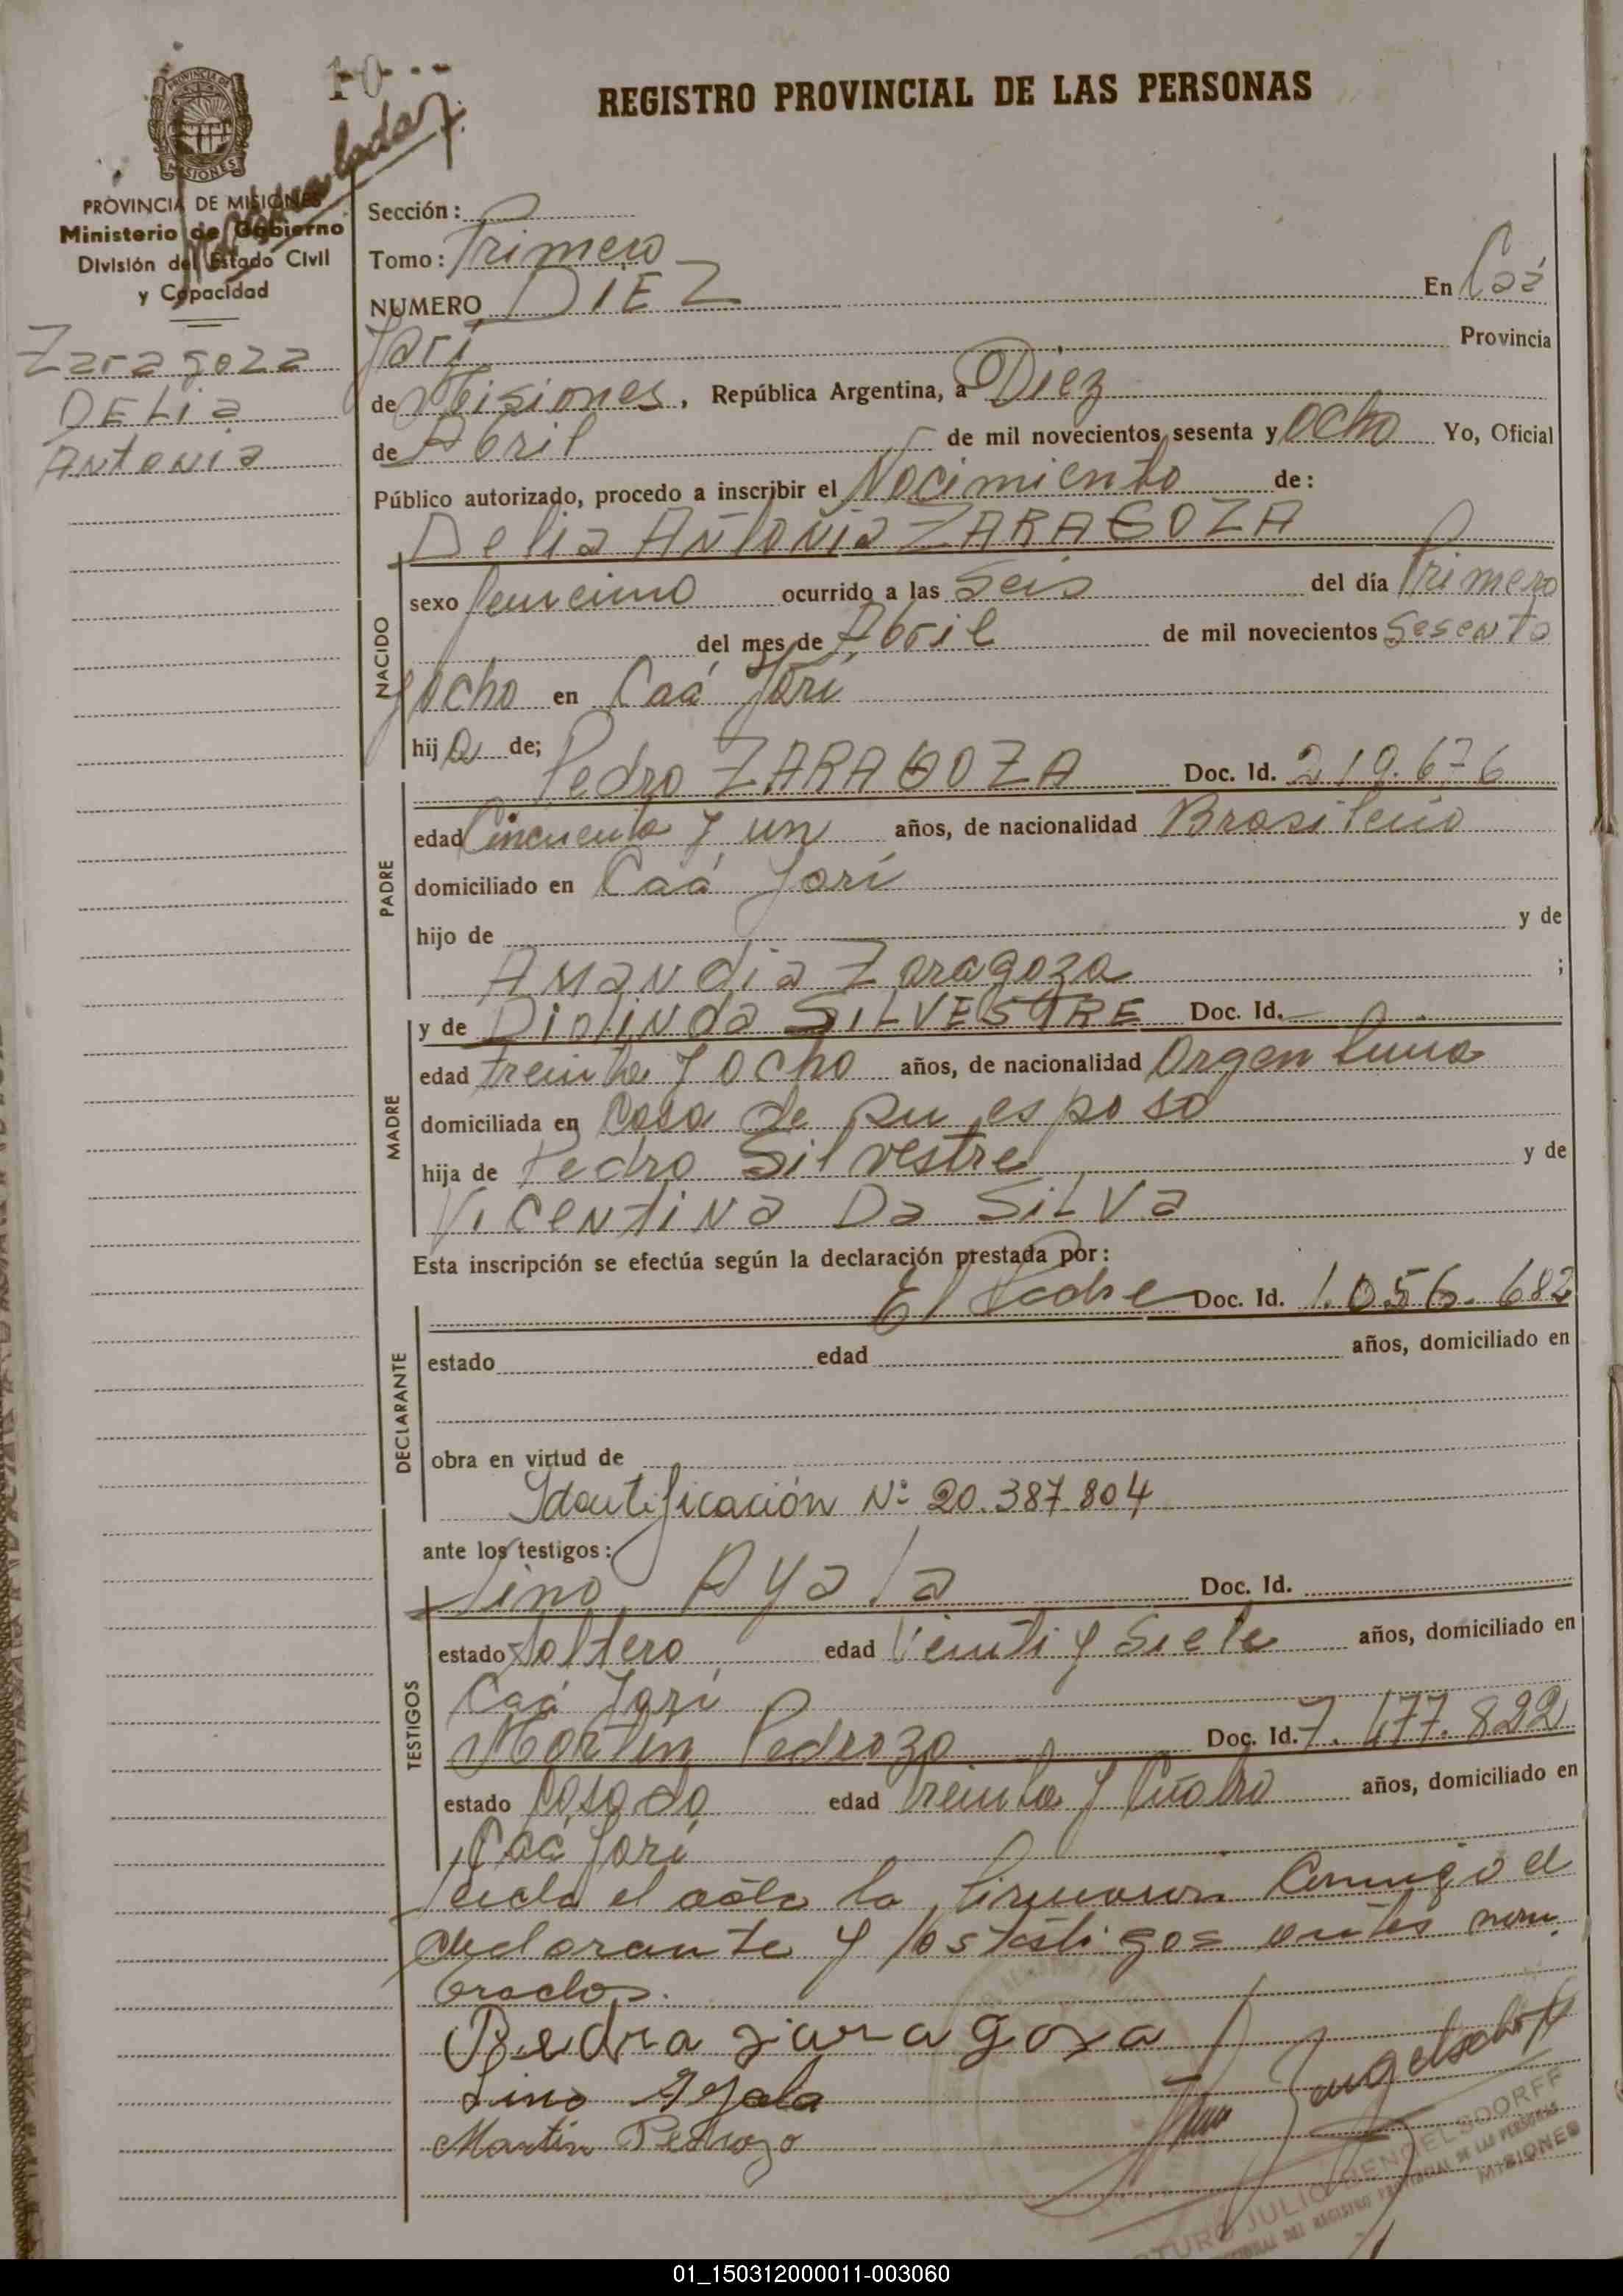 10
REGISTRO PROVINCIAL DE LAS PERSONAS
PROVINCIA DE MISIONES
MISIONES
PROVINCIA DE MISIONES
Ministerio de Gobierno
División del Estado Civil
y Capacidad
Zaragoza
DELia
Antonia
Sección:
Tomo: Primero
NUMERO DIEZ En Caá
Yarí Provincia
de Misiones, República Argentina, a Diez
de Abril de mil novecientos sesenta y ocho Yo, Oficial
Público autorizado, procedo a inscribir el Nacimiento de:
Delia Antonia ZARAGOZA
NACIDO
sexo femenino ocurrido a las Seis del día Primero
del mes de Abril de mil novecientos Sesenta
y ocho en Caá Yarí
hija de;
Pedro ZARAGOZA Doc. Id. 219.676
PADRE
edad Cincuenta y un años, de nacionalidad Brasileño
domiciliado en Caá Yarí
hijo de y de
Amandia Zaragoza ;
MADRE
y de Diolinda SILVESTRE Doc. Id.
edad treinta y ocho años, de nacionalidad Argentina
domiciliada en Casa de su esposo
hija de Pedro Silvestre y de
Vicentina Da Silva
Esta inscripción se efectúa según la declaración prestada por:
El Padre Doc. Id. 1.056.682
DECLARANTE
estado edad años, domiciliado en
obra en virtud de
Identificación Nº 20.387.804
ante los testigos:
Lino Ayala Doc. Id.
TESTIGOS
estado Soltero edad Veinti y Siete años, domiciliado en
Caá Yarí
Martín Pedrozo Doc. Id. 7.477.822
estado Casado edad Treinta y Cuatro años, domiciliado en
Caá Yarí
Leida el acta la firmaron Conmigo el
declarante y los testigos antes nom
brados.
Pedra zaragoza
Lino Ayala
Martin Pedrozo
ARTURO JULIO BENGELSDORFF
DEL REGISTRO PROVINCIAL DE LAS PERSONAS
MISIONES
01_150312000011-003060